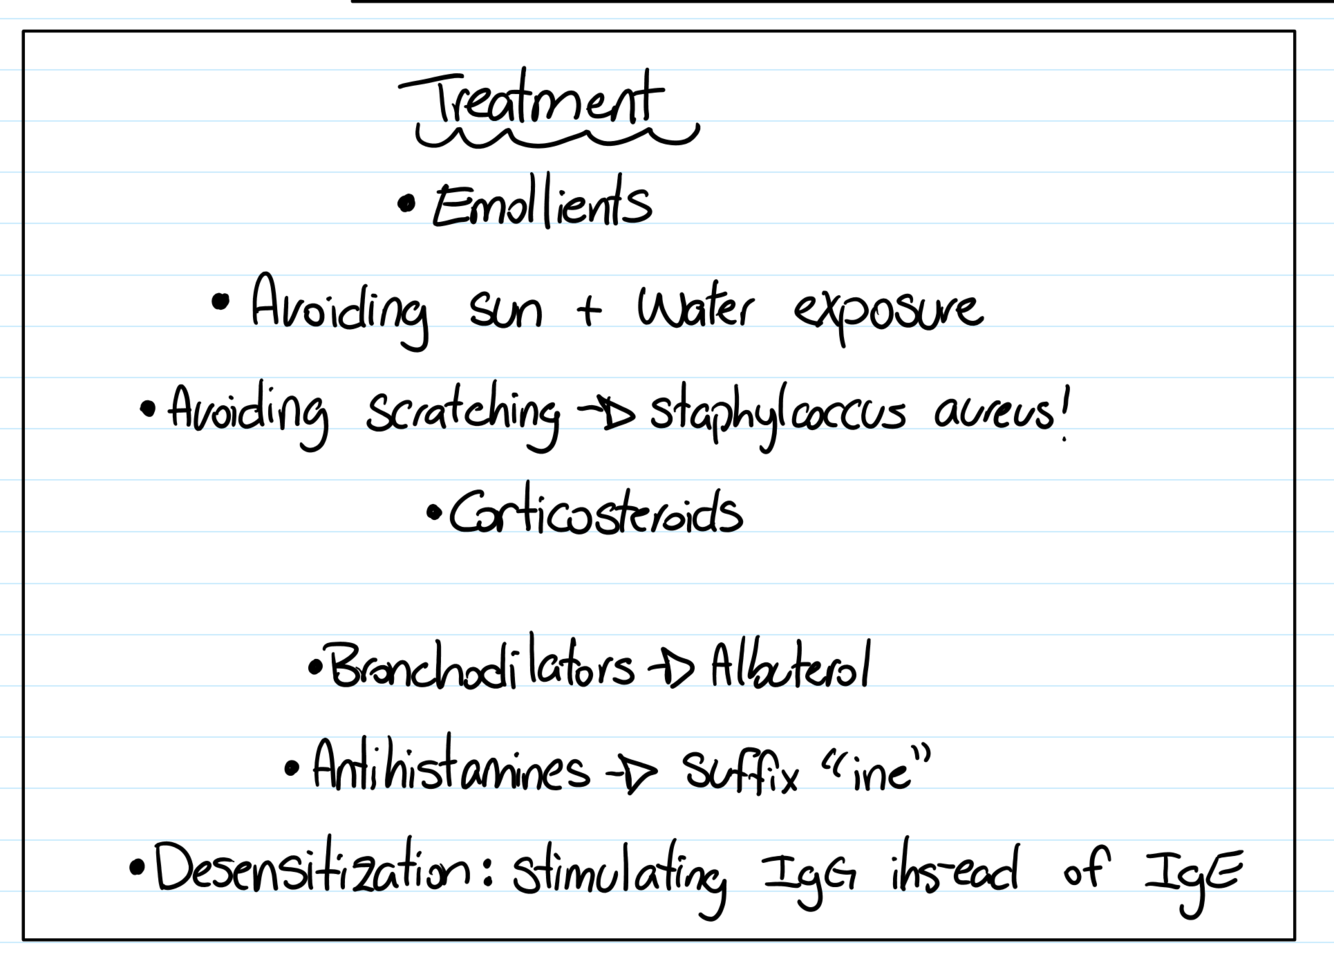 Treatment
• Emollients
• Avoiding sun + Water exposure
• Avoiding scratching → staphylcoccus aureus!
• Corticosteroids
• Bronchodilators → Albuterol
• Antihistamines → suffix “ine”
• Desensitization: stimulating IgG instead of IgE